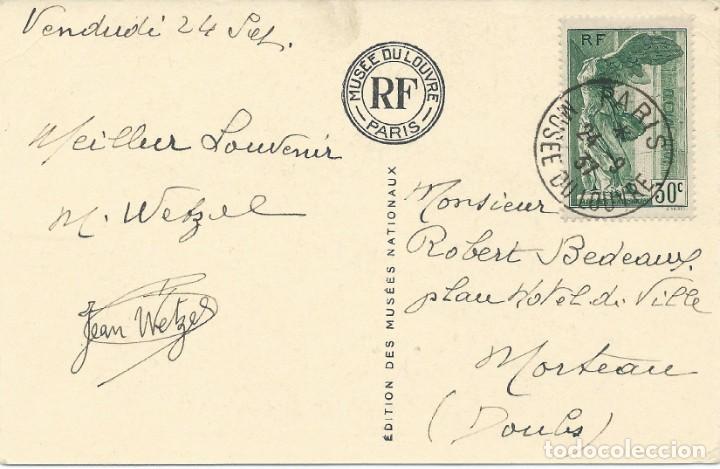 Vendredi 24 Set.
Meilleur Souvenir
M. Wetzel
Jean Wetzel
MUSÉE DU LOUVRE
RF
PARIS
ÉDITION DES MUSÉES NATIONAUX
RF
30c
PARIS
24 - 9
37
MUSEE DU LOUVRE
Monsieur
Robert Bedeaux
place Hotel de Ville
Morteau
(Doubs)
todocoleccion